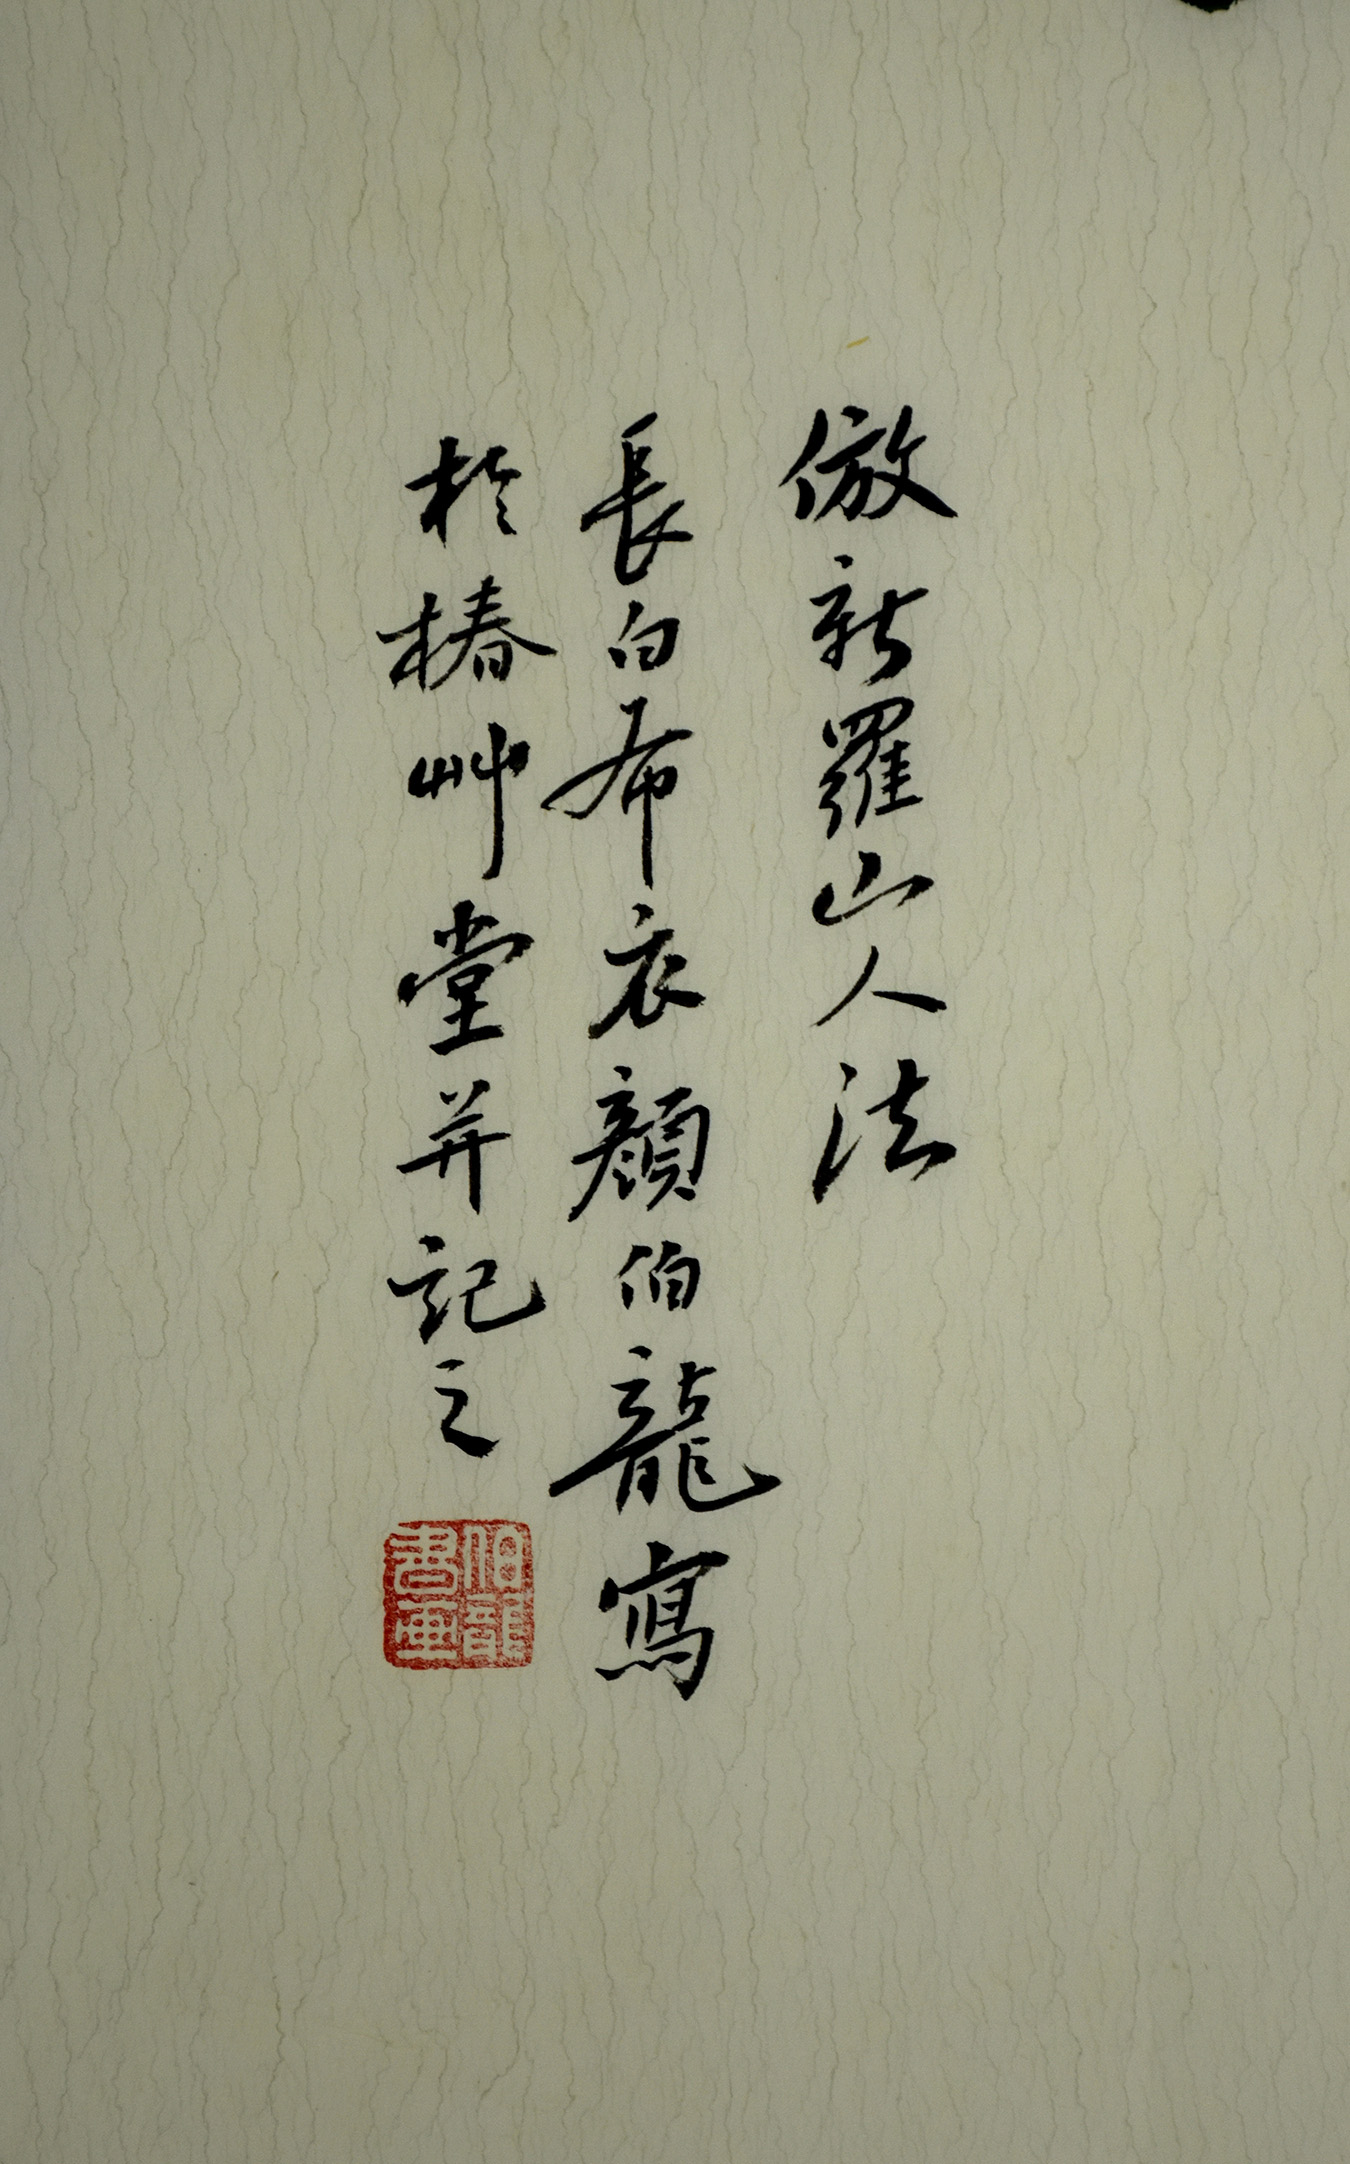 倣新羅山人法
長白布衣顏伯龍寫
於椿艸堂并記之
伯龍
書畫